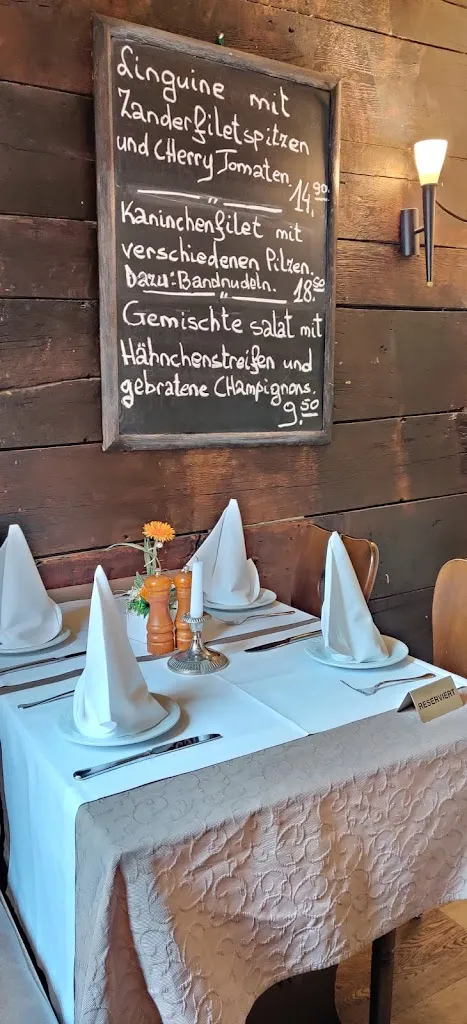 Linguine mit
Zanderfiletspitzen
und CHerry Tomaten.
14.90
"
Kaninchenfilet mit
verschiedenen Pilzen.
Dazu: Bandnudeln. 18.50
"
Gemischte salat mit
Hähnchenstreifen und
gebratene CHampignons.
9.50
RESERVIERT